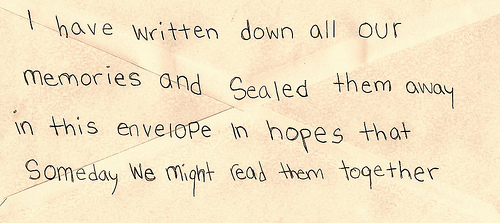 I have written down all our
memories and Sealed them away
in this envelope in hopes that
Someday we might read them together